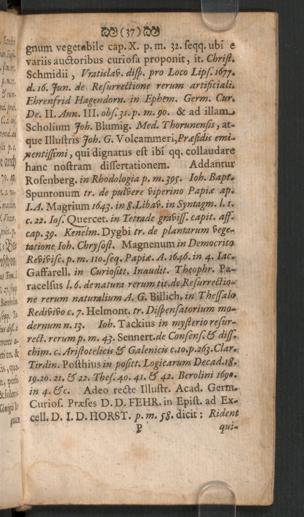 (37)
gnum vegetabile cap. X. p. m. 32. seqq. ubi e
variis auctoribus curiosa proponit, it. Christ.
Schmidii, Vratislav. disp. pro Loco Lips. 1677.
d. 16. Jun. de Resurrectione rerum artificiali.
Ehrenfrid Hagendorn. in Ephem. Germ. Cur.
De. II. Ann. III. obs. 31. p. m. 90. & ad illam
Scholium Joh. Blumig. Med. Thorunensis, at-
que Illustris Joh. G. Volcammeri, Præsidis emi-
nentissimi, qui dignatus est ibi qq. collaudare
hanc nostram dissertationem. Addantur
Rosenberg. in Rhodologia p. m. 395. Joh. Bapt.
Spuntonum tr. de pulvere viperino Papiæ ap.
I.A. Magrium 1643. in 8. Libav. in Syntagm. l. 1.
c. 22. Jos. Quercet. in Tetrade graviss. capit. aff.
cap. 39. Kenelm. Dygbi tr. de plantarum vege-
tatione Joh. Chrysost. Magnenum in Democrito
Revivisc. p. m. 110. seq. Papiæ. A. 1646. in 4. Jac.
Gaffarell. in Curiosite. Inaudit. Theophr. Pa-
racelsus l. 6. de natura rerum tit. de Resurrectio-
ne rerum naturalium A. G. Billich, in Thessalo
Redivivo c. 7. Helmont. tr. Dispensatorium mo-
dernum n. 13. Joh. Tackius in mysterio resur-
rect. rerum p. m. 43. Sennert. de Consens. & diss.
chim. c. Aristotelicis & Galenicis c. 10. p. 263. Clar.
Tirdin. Posthius in posit. Logicarum Decad. 18.
19. 20. 21. & 22. Thes. 40. 41. & 42. Berolini 1690.
in 4. &c. Adeo recte Illustr. Acad. Germ.
Curios. Præses D. D. FEHR. in Epist. ad Ex-
cell. D. I. D. HORST. p. m. 58. dicit: Rident
P qui-